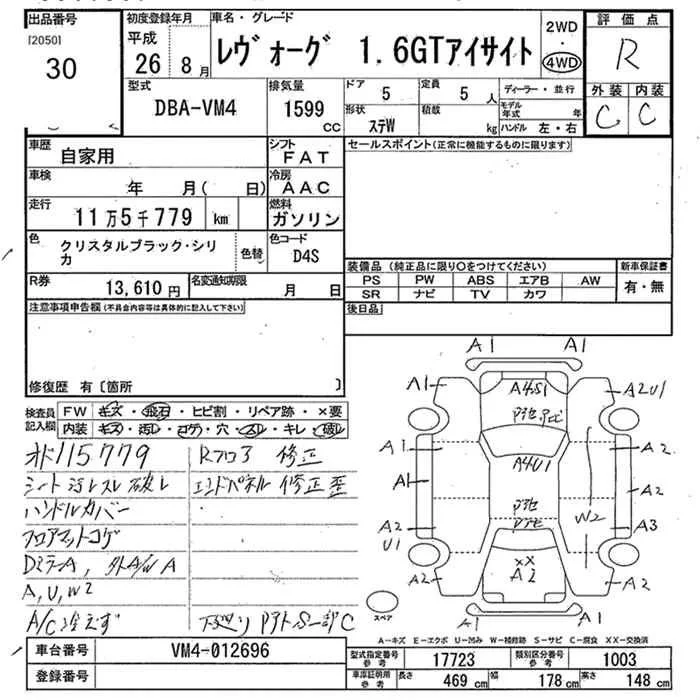 出品番号
[2050]
30
初度登録年月
平成
26 8月
車名・グレード
レヴォーグ 1.6GTアイサイト
2WD
・
4WD
評価点
R
外装 内装
C C
型式
DBA-VM4
排気量
1599
CC
ドア
5
定員
5 人
形状
ステW
積載
kg
ディーラー・並行
モデル年式 年
ハンドル 左・右
車歴
自家用
シフト
FAT
車検
年 月( 日)
冷房
AAC
走行
11万5千779 km
燃料
ガソリン
色
クリスタルブラック・シリカ
色替
色コード
D4S
R券
13,610円
名変通知期限
月 日
セールスポイント(正常に機能するものに限ります)
装備品 (純正品に限り○をつけてください)
PS PW ABS エアB AW
SR ナビ TV カワ
新車保証書
有・無
後日品
注意事項申告欄(不具合内容等は具体的に記入して下さい)
修復歴 有〔箇所 〕
検査員記入欄
FW キズ・飛石・ヒビ割・リペア跡・×要
内装 キズ・汚レ・コゲ・穴・スレ・キレ・破レ
115779
シート汚レスレ破レ
ハンドルカバー
フロアマットコゲ
DミラーA, 外A/W A
A,U,W2
A/C冷えず
Rフロア 修正
エンドパネル 修正歪
下廻り
A1 A1
A1 A4S1 A2U1
A1 A4U1 A2
A1 A2
A2 W2 A3
U1
A2 XX A2
A2
A1 A1
スペア
A－キズ E－エクボ U－凹み W－補修跡 S－サビ C－腐食 XX－交換済
車台番号
VM4-012696
登録番号
型式指定番号 参考
17723
類別区分番号 参考
1003
車庫証明用 参考
長さ 469 cm 幅 178 cm 高さ 148 cm